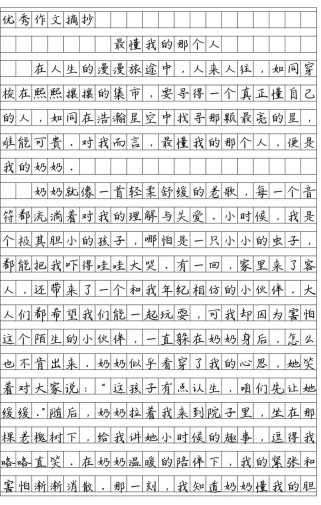 优秀作文摘抄
最懂我的那个人
在人生的漫漫旅途中,人来人往,如同穿
梭在熙熙攘攘的集市,要寻得一个真正懂自己
的人,如同在浩瀚星空中找寻那颗最亮的星,
难能可贵.对我而言,最懂我的那个人,便是
我的奶奶.
奶奶就像一首轻柔舒缓的老歌,每一个音
符都流淌着对我的理解与关爱.小时候,我是
个极其胆小的孩子,哪怕是一只小小的虫子,
都能把我吓得哇哇大哭.有一回,家里来了客
人,还带来了一个和我年纪相仿的小伙伴.大
人们都希望我们能一起玩耍,可我却因为害怕
这个陌生的小伙伴,一直躲在奶奶身后,怎么
也不肯出来.奶奶似乎看穿了我的心思,她笑
着对大家说:"这孩子有点认生,咱们先让她
缓缓."随后,奶奶拉着我来到院子里,坐在那
棵老槐树下,给我讲她小时候的趣事,逗得我
咯咯直笑.在奶奶温暖的陪伴下,我的紧张和
害怕渐渐消散.那一刻,我知道奶奶懂我的胆